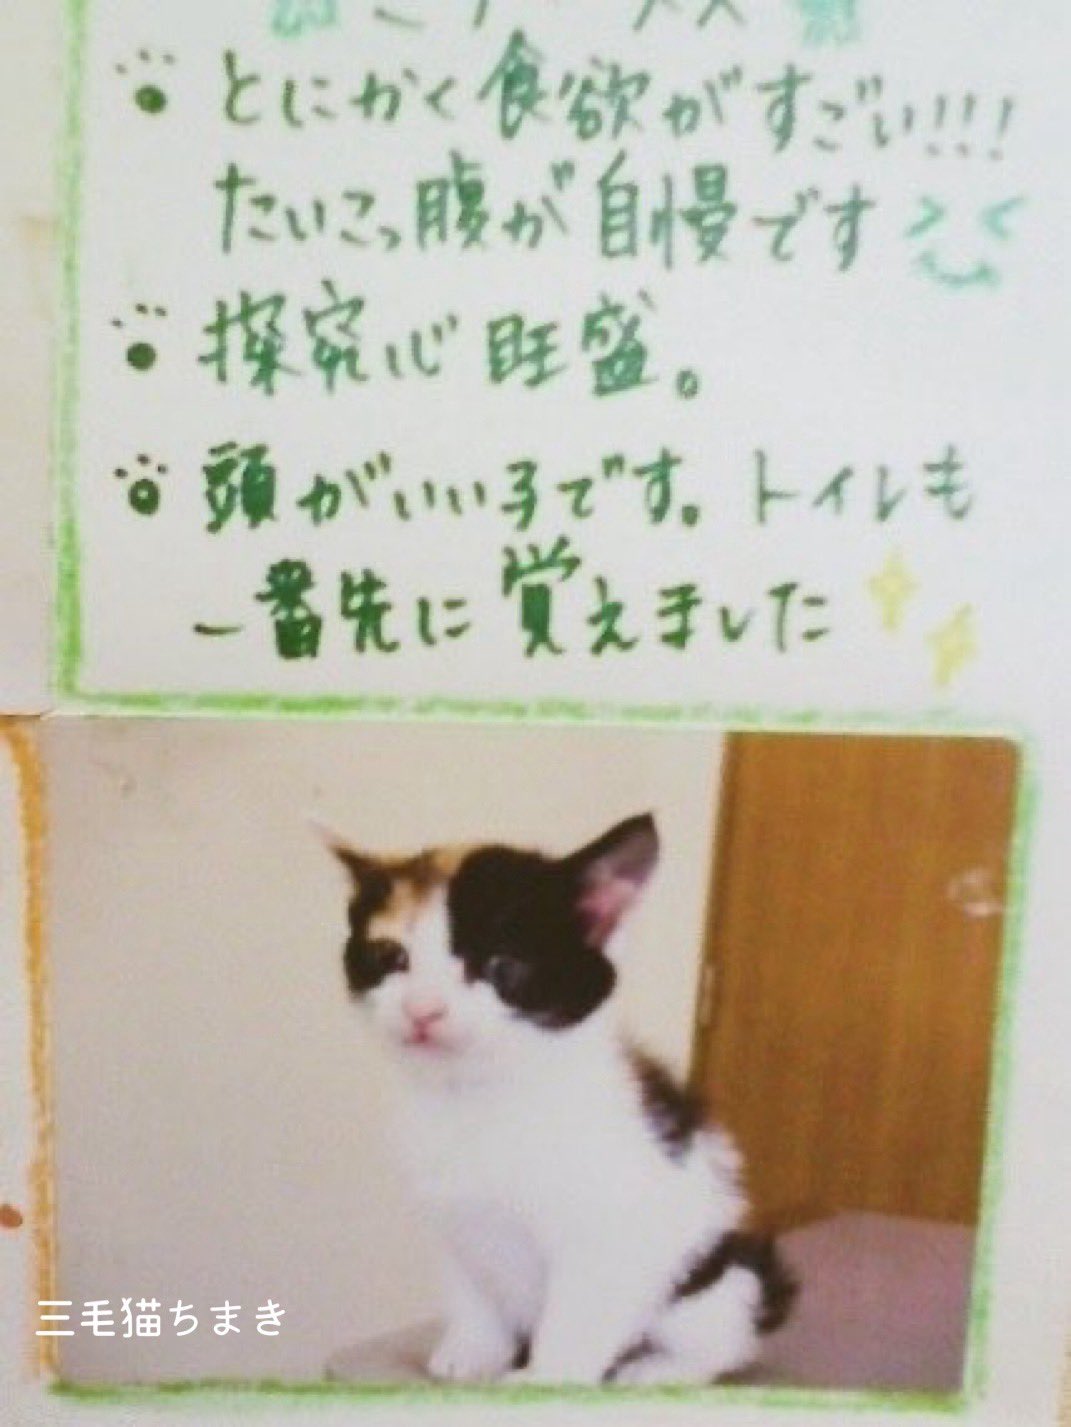 とにかく食欲がすごい!!!
たいこっ腹が自慢です
探究心旺盛。
頭がいい子です。トイレも
一番先に覚えました
三毛猫ちまき